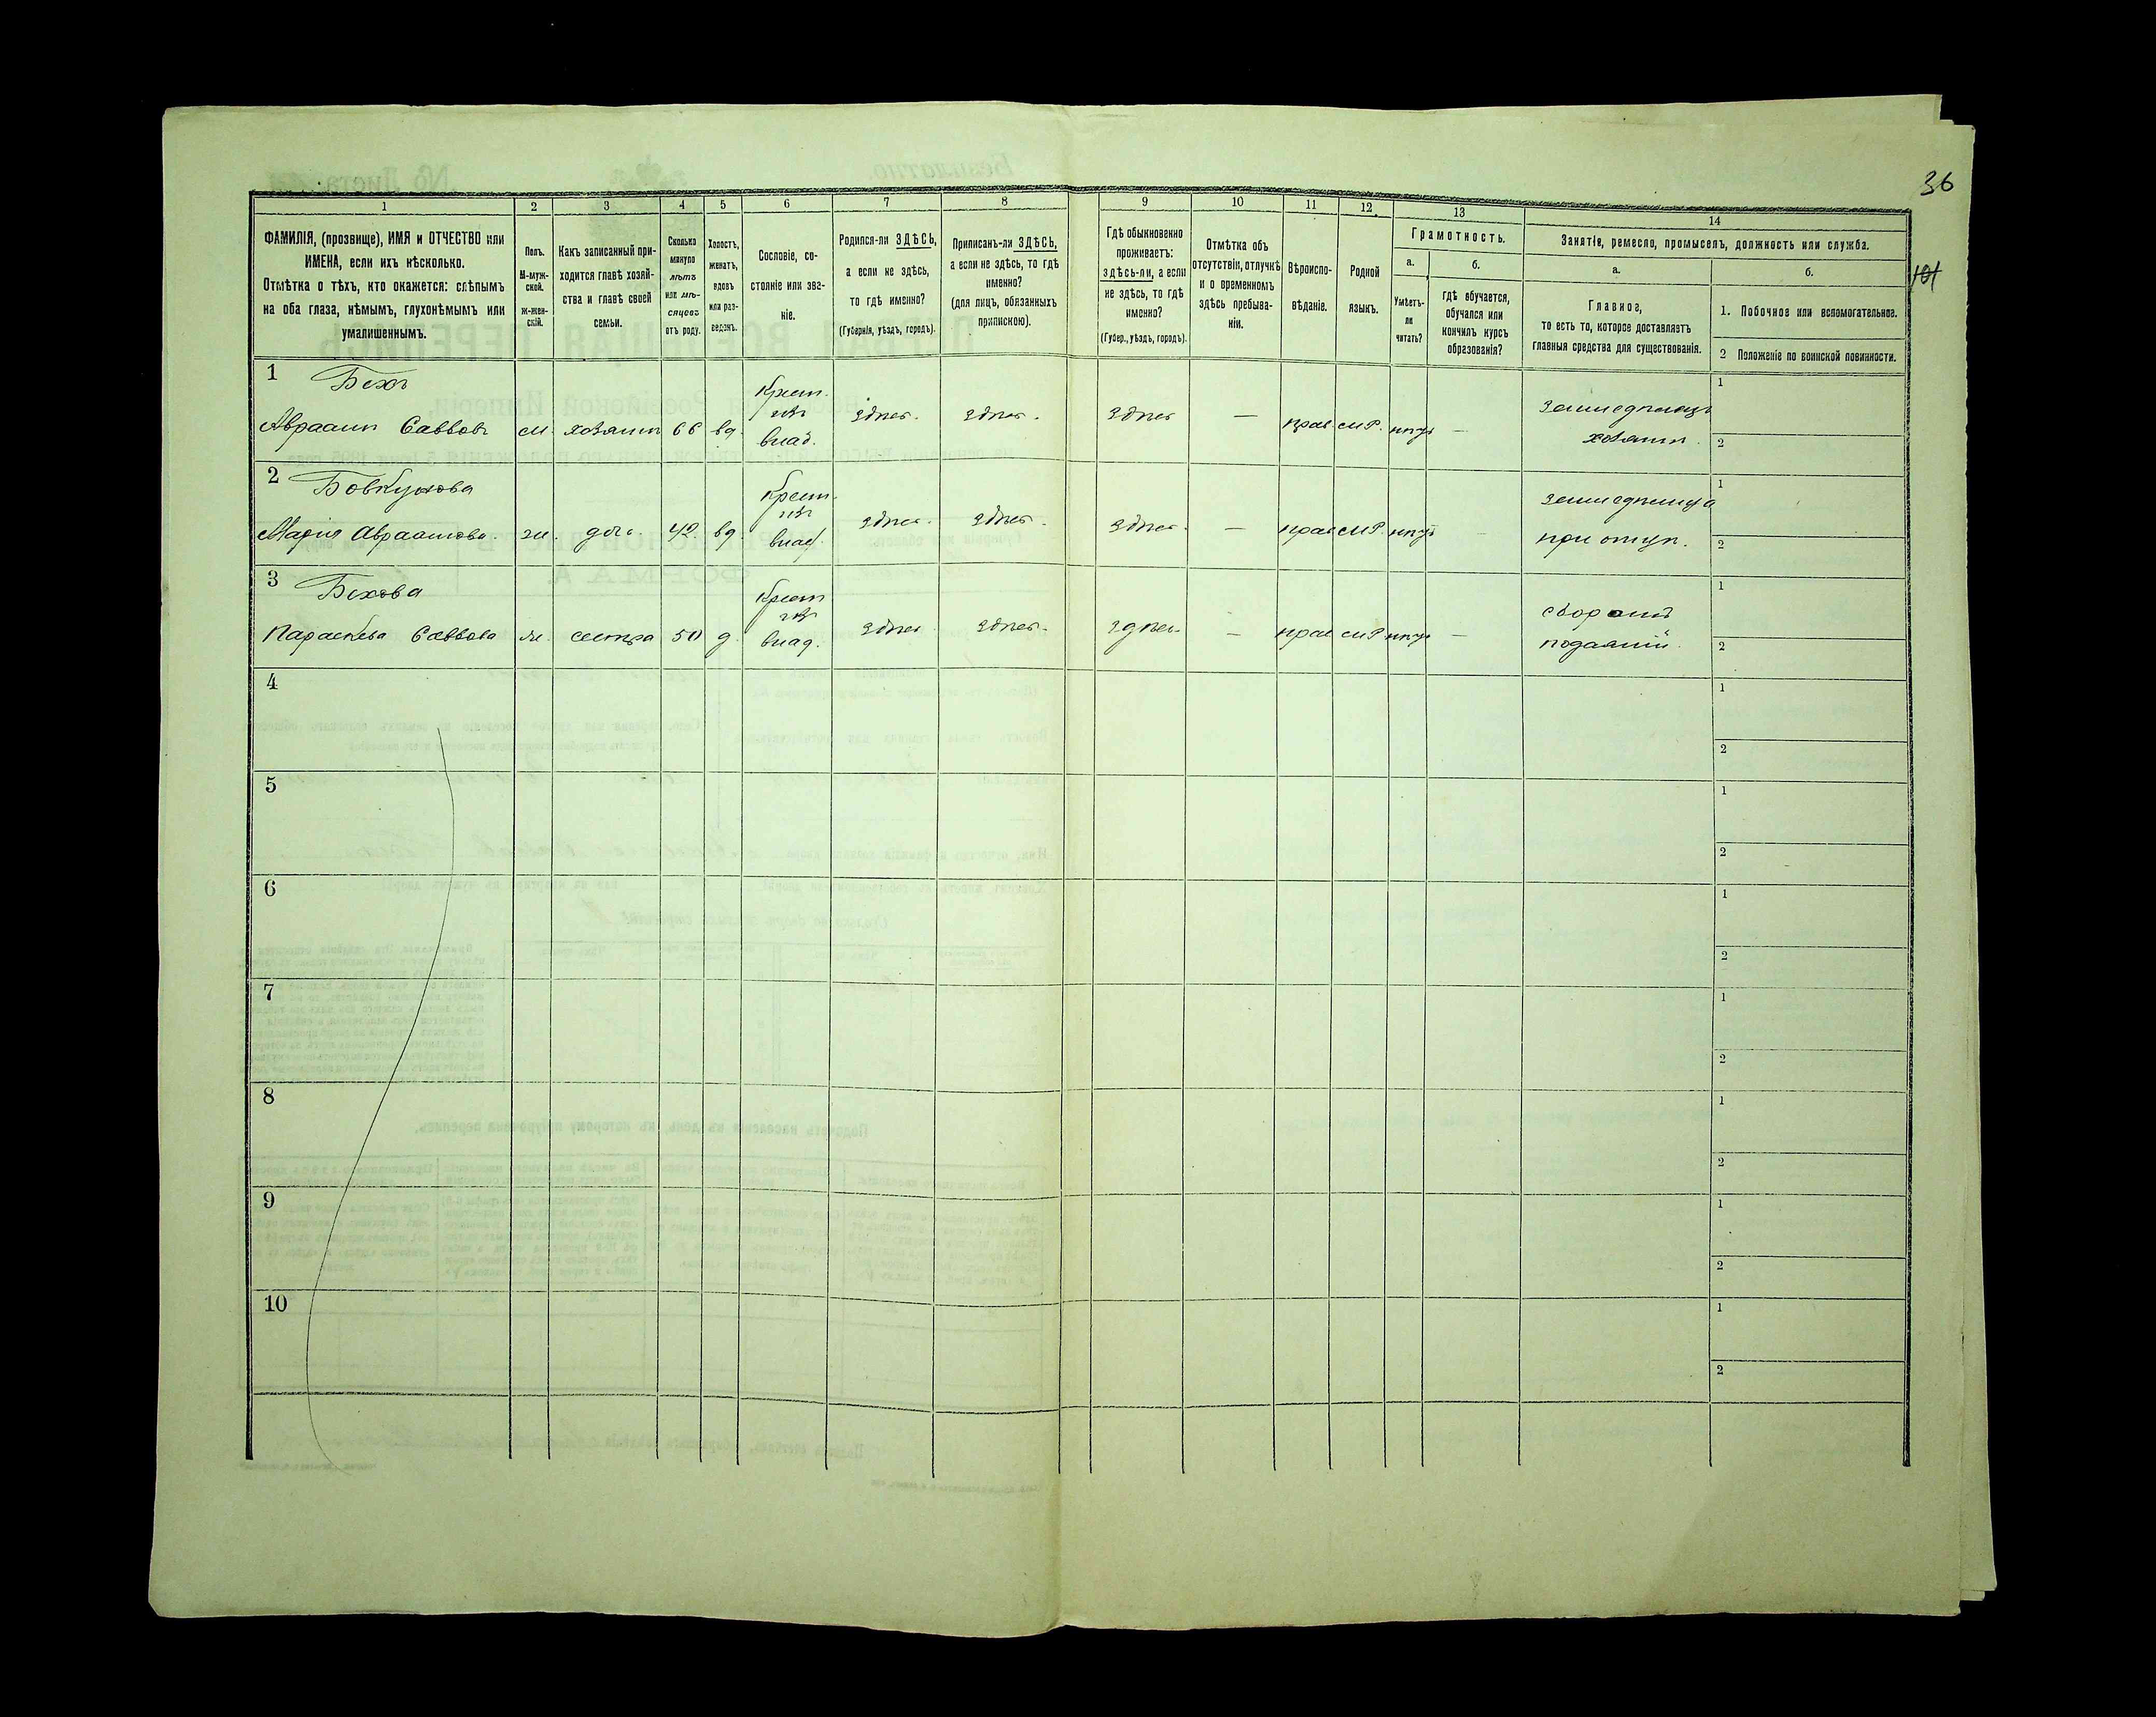 36
101
1 2 3 4 5 6 7 8 9 10 11 12 13 14
ФАМИЛІЯ, (прозвище), ИМЯ и ОТЧЕСТВО или
ИМЕНА, если ихъ нѣсколько.
Отмѣтка о тѣхъ, кто окажется: слѣпымъ
на оба глаза, нѣмымъ, глухонѣмымъ или
умалишеннымъ.
Полъ.
М-муж-
ской.
ж-жен-
скій.
Какъ записанный при-
ходится главѣ хозяй-
ства и главѣ своей
семьи.
Сколько
минуло
лѣтъ
или мѣ-
сяцевъ
отъ роду.
Холостъ,
женатъ,
вдовъ
или раз-
веденъ.
Сословіе, со-
стояніе или зва-
ніе.
Родился-ли ЗДѢСЬ,
а если не здѣсь,
то гдѣ именно?
(Губернія, уѣздъ, городъ).
Приписанъ-ли ЗДѢСЬ,
а если не здѣсь, то гдѣ
именно?
(для лицъ, обязанныхъ
припискою).
Гдѣ обыкновенно
проживаетъ:
здѣсь-ли, а если
не здѣсь, то гдѣ
именно?
(Губер., уѣздъ, городъ).
Отмѣтка объ
отсутствіи, отлучкѣ
и о временномъ
здѣсь пребыва-
ніи.
Вѣроиспо-
вѣданіе.
Родной
языкъ.
Грамотность.
а.
Умѣетъ-
ли
читать?
б.
Гдѣ обучается,
обучался или
кончилъ курсъ
образованія?
Занятіе, ремесло, промыселъ, должность или служба.
а.
Главное,
то есть то, которое доставляетъ
главныя средства для существованія.
б.
1. Побочное или вспомогательное.
2 Положеніе по воинской повинности.
1 Бехъ
Авраамъ Саввовъ м. хозяинъ 66 вд. Крест. изъ влад. здѣсь. здѣсь. здѣсь — прав. М.Р. нѣтъ —
земледѣлецъ
хозяинъ.
1
2
2 Бовкунова
Марія Авраамова. ж. дочь. 42. вд. Крест. изъ влад. здѣсь. здѣсь. здѣсь. — прав М.Р. нѣтъ —
земледѣлица
при отцѣ.
1
2
3 Бехова
Параскева Саввова ж. сестра 50 д. Крест изъ влад. здѣсь здѣсь. здѣсь. — прав М.Р. нѣтъ —
сборомъ
подаяній.
1
2
4
1
2
5
1
2
6
1
2
7
1
2
8
1
2
9
1
2
10
1
2